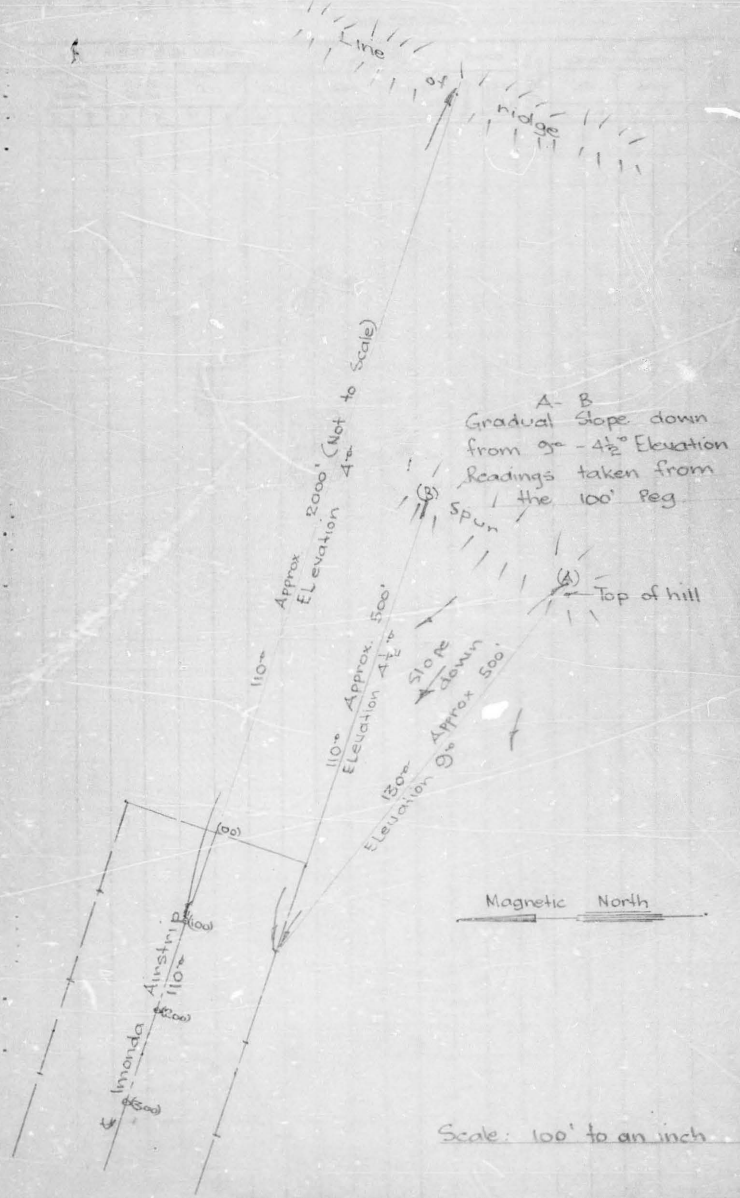 Line
of
ridge
A - B
Gradual Slope down
from 9° - 4½° Elevation
Readings taken from
the 100' Peg
Approx 2000' (Not to Scale)
Elevation 4°
110°
(B)
Spur
(A)
Top of hill
110° Approx. 500'
Elevation 4½°
Slope
down
130° Approx 500'
Elevation 9°
(00)
(100)
(200)
(300)
Imonda Airstrip
110°
Magnetic North
Scale: 100' to an inch